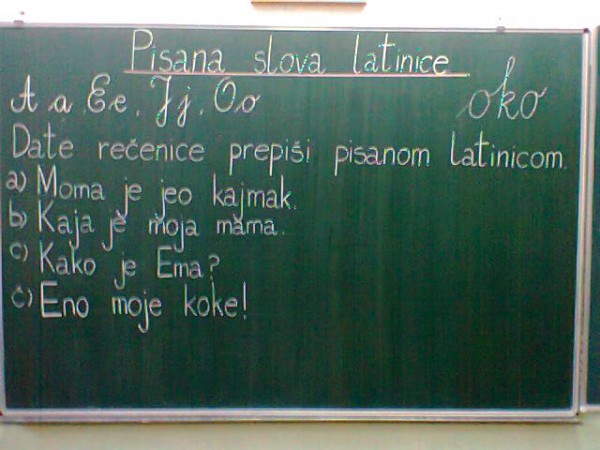 Pisana slova latinice
A a, E e, J j, O o oko
Date rečenice prepiši pisanom latinicom.
a) Moma je jeo kajmak.
b) Kaja je moja mama.
c) Kako je Ema?
č) Eno moje koke!